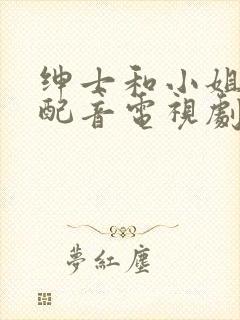 绅士和小姐
配音電視劇
夢紅塵